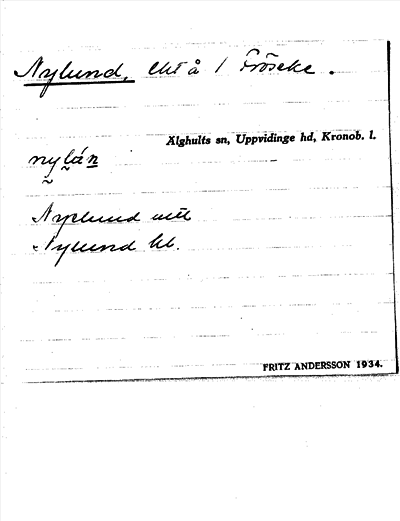 Nylund, lht å 1 Fröseke.
Älghults sn, Uppvidinge hd, Kronob. l.
nylán
Nylund
Nylund
FRITZ ANDERSSON 1934.